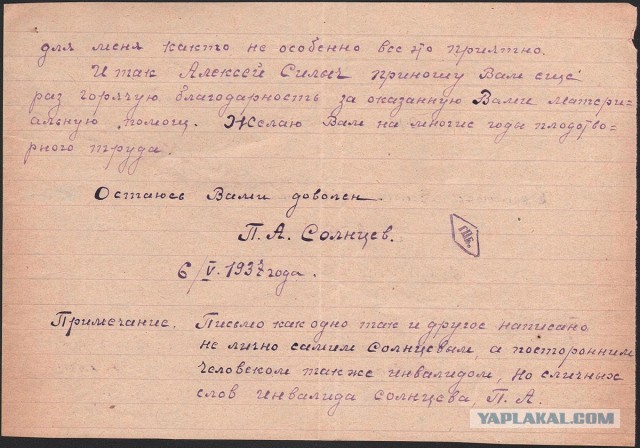 для меня както не особенно все это приятно.
И так Алексей Силыч приношу Вам еще
раз горячую благодарность за оказанную Вами матери-
альную помощ. Желаю Вам на многие годы плодотво-
рного труда.
Остаюсь Вами доволен.
П. А. Солнцев.
ГПБ
6/V. 1937 года.
Примечание. Письмо как одно так и другое написано
не лично самим Солнцевым, а посторонним
человеком также инвалидом, но с личных
слов инвалида Солнцева, П. А.
YAPLAKAL.COM